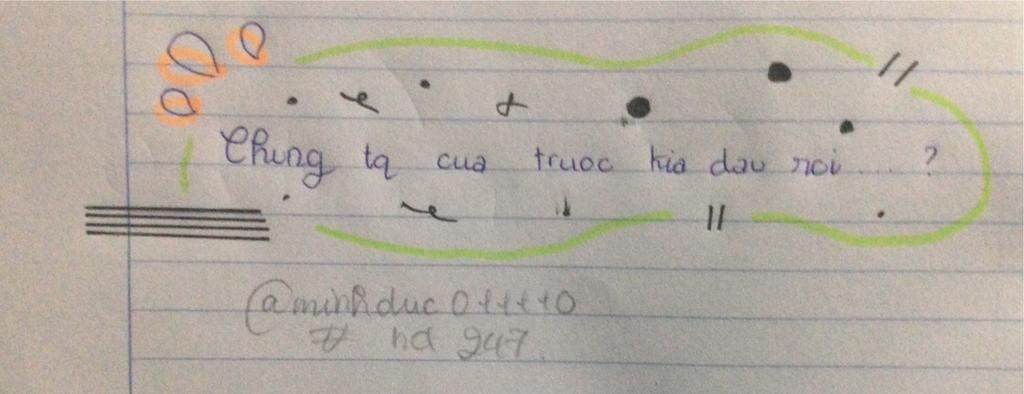 Chung ta cua truoc kia dau roi .... ?
@minhduc0++++0
# hd 247